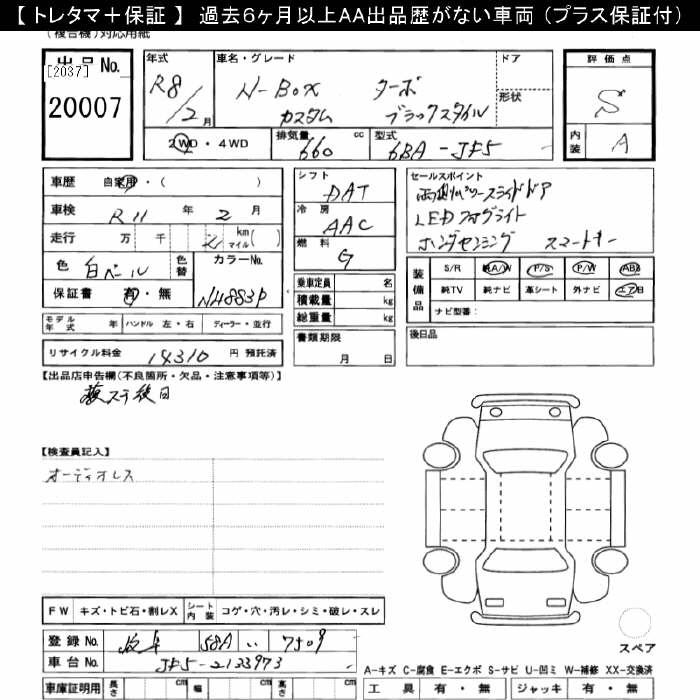 【 トレタマ＋保証 】 過去6ヶ月以上AA出品歴がない車両 (プラス保証付)
(複合機)対応用紙
出品No.
[2037]
20007
年式 R8/2月
車名・グレード N-Box ターボ
カスタム ブラックスタイル
ドア
形状
2WD・4WD
排気量 660 cc
型式 6BA-JF5
評価点 S
内装 A
車歴 自家用・( )
車検 R11年 2月
走行 万 千 2 km マイル( )
色 白パール 色替
カラーNo. NH883P
保証書 有・無
モデル年式 年 ハンドル 左・右 ディーラー・並行
リサイクル料金 14310 円 預託済
シフト DAT
冷房 AAC
燃料 G
乗車定員 名
積載量 kg
総重量 kg
書類期限 月 日
セールスポイント
両側パワースライドドア
LEDフォグライト
ホンダセンシング スマートキー
装備品
S/R 純A/W P/S P/W ABS
純TV 純ナビ 革シート 外ナビ エアB
ナビ型番：
後日品
【出品店申告欄(不良箇所・欠品・注意事項等)】
後日
【検査員記入】
オーディオレス
FW キズ・トビ石・割レX シート内装 コゲ・穴・汚レ・シミ・破レ・スレ
登録No. 岐阜 58A い 7509
車台No. JF5-2133973
車庫証明用 長さ cm 幅 cm 高さ cm
スペア
A-キズ C-腐食 E-エクボ S-サビ U-凹ミ W-補修 XX-交換済
工具 有・無 ジャッキ 有・無